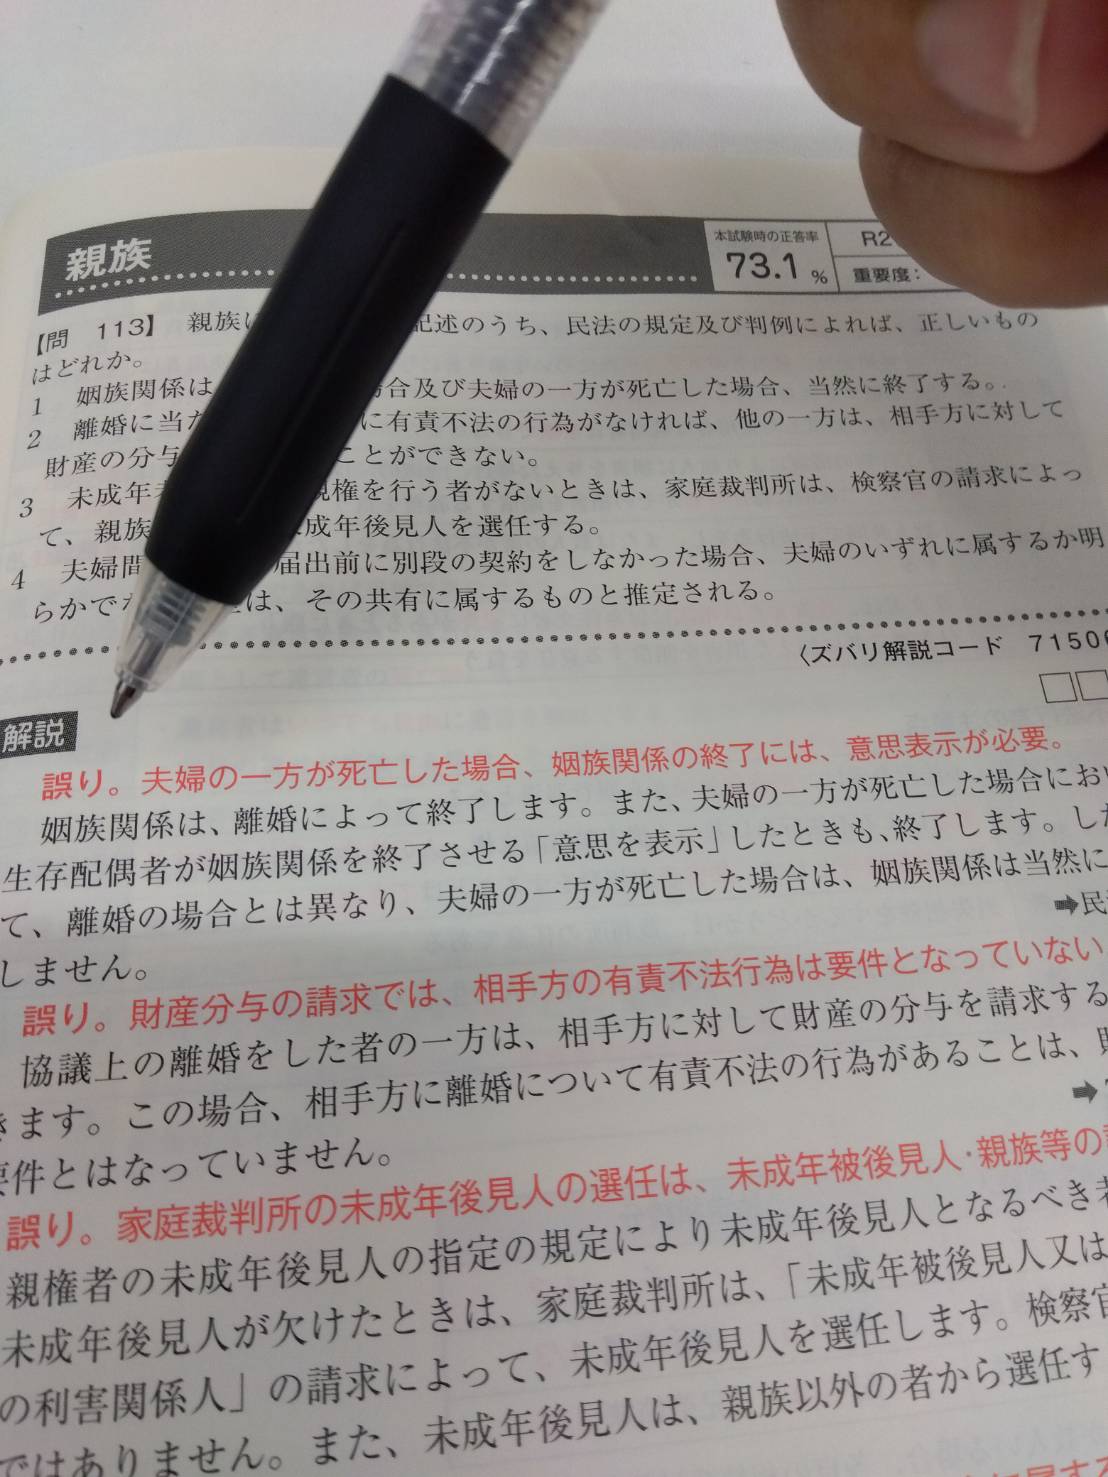 親族
本試験時の正答率
73.1%
R2
重要度:
【問 113】 親族に 記述のうち、民法の規定及び判例によれば、正しいもの
はどれか。
1 姻族関係は 場合及び夫婦の一方が死亡した場合、当然に終了する。
2 離婚に当た に有責不法の行為がなければ、他の一方は、相手方に対して
財産の分与 ことができない。
3 未成年 親権を行う者がないときは、家庭裁判所は、検察官の請求によっ
て、親族 未成年後見人を選任する。
4 夫婦間 届出前に別段の契約をしなかった場合、夫婦のいずれに属するか明
らかで は、その共有に属するものと推定される。
〈ズバリ解説コード 7150
解説
誤り。夫婦の一方が死亡した場合、姻族関係の終了には、意思表示が必要。
姻族関係は、離婚によって終了します。また、夫婦の一方が死亡した場合にお
生存配偶者が姻族関係を終了させる「意思を表示」したときも、終了します。した
て、離婚の場合とは異なり、夫婦の一方が死亡した場合は、姻族関係は当然に
しません。
➡民
誤り。財産分与の請求では、相手方の有責不法行為は要件となっていない
協議上の離婚をした者の一方は、相手方に対して財産の分与を請求する
きます。この場合、相手方に離婚について有責不法の行為があることは、
要件とはなっていません。
➡
誤り。家庭裁判所の未成年後見人の選任は、未成年被後見人・親族等の
親権者の未成年後見人の指定の規定により未成年後見人となるべき者
未成年後見人が欠けたときは、家庭裁判所は、「未成年被後見人又は
の利害関係人」の請求によって、未成年後見人を選任します。検察官
ではありません。また、未成年後見人は、親族以外の者から選任す